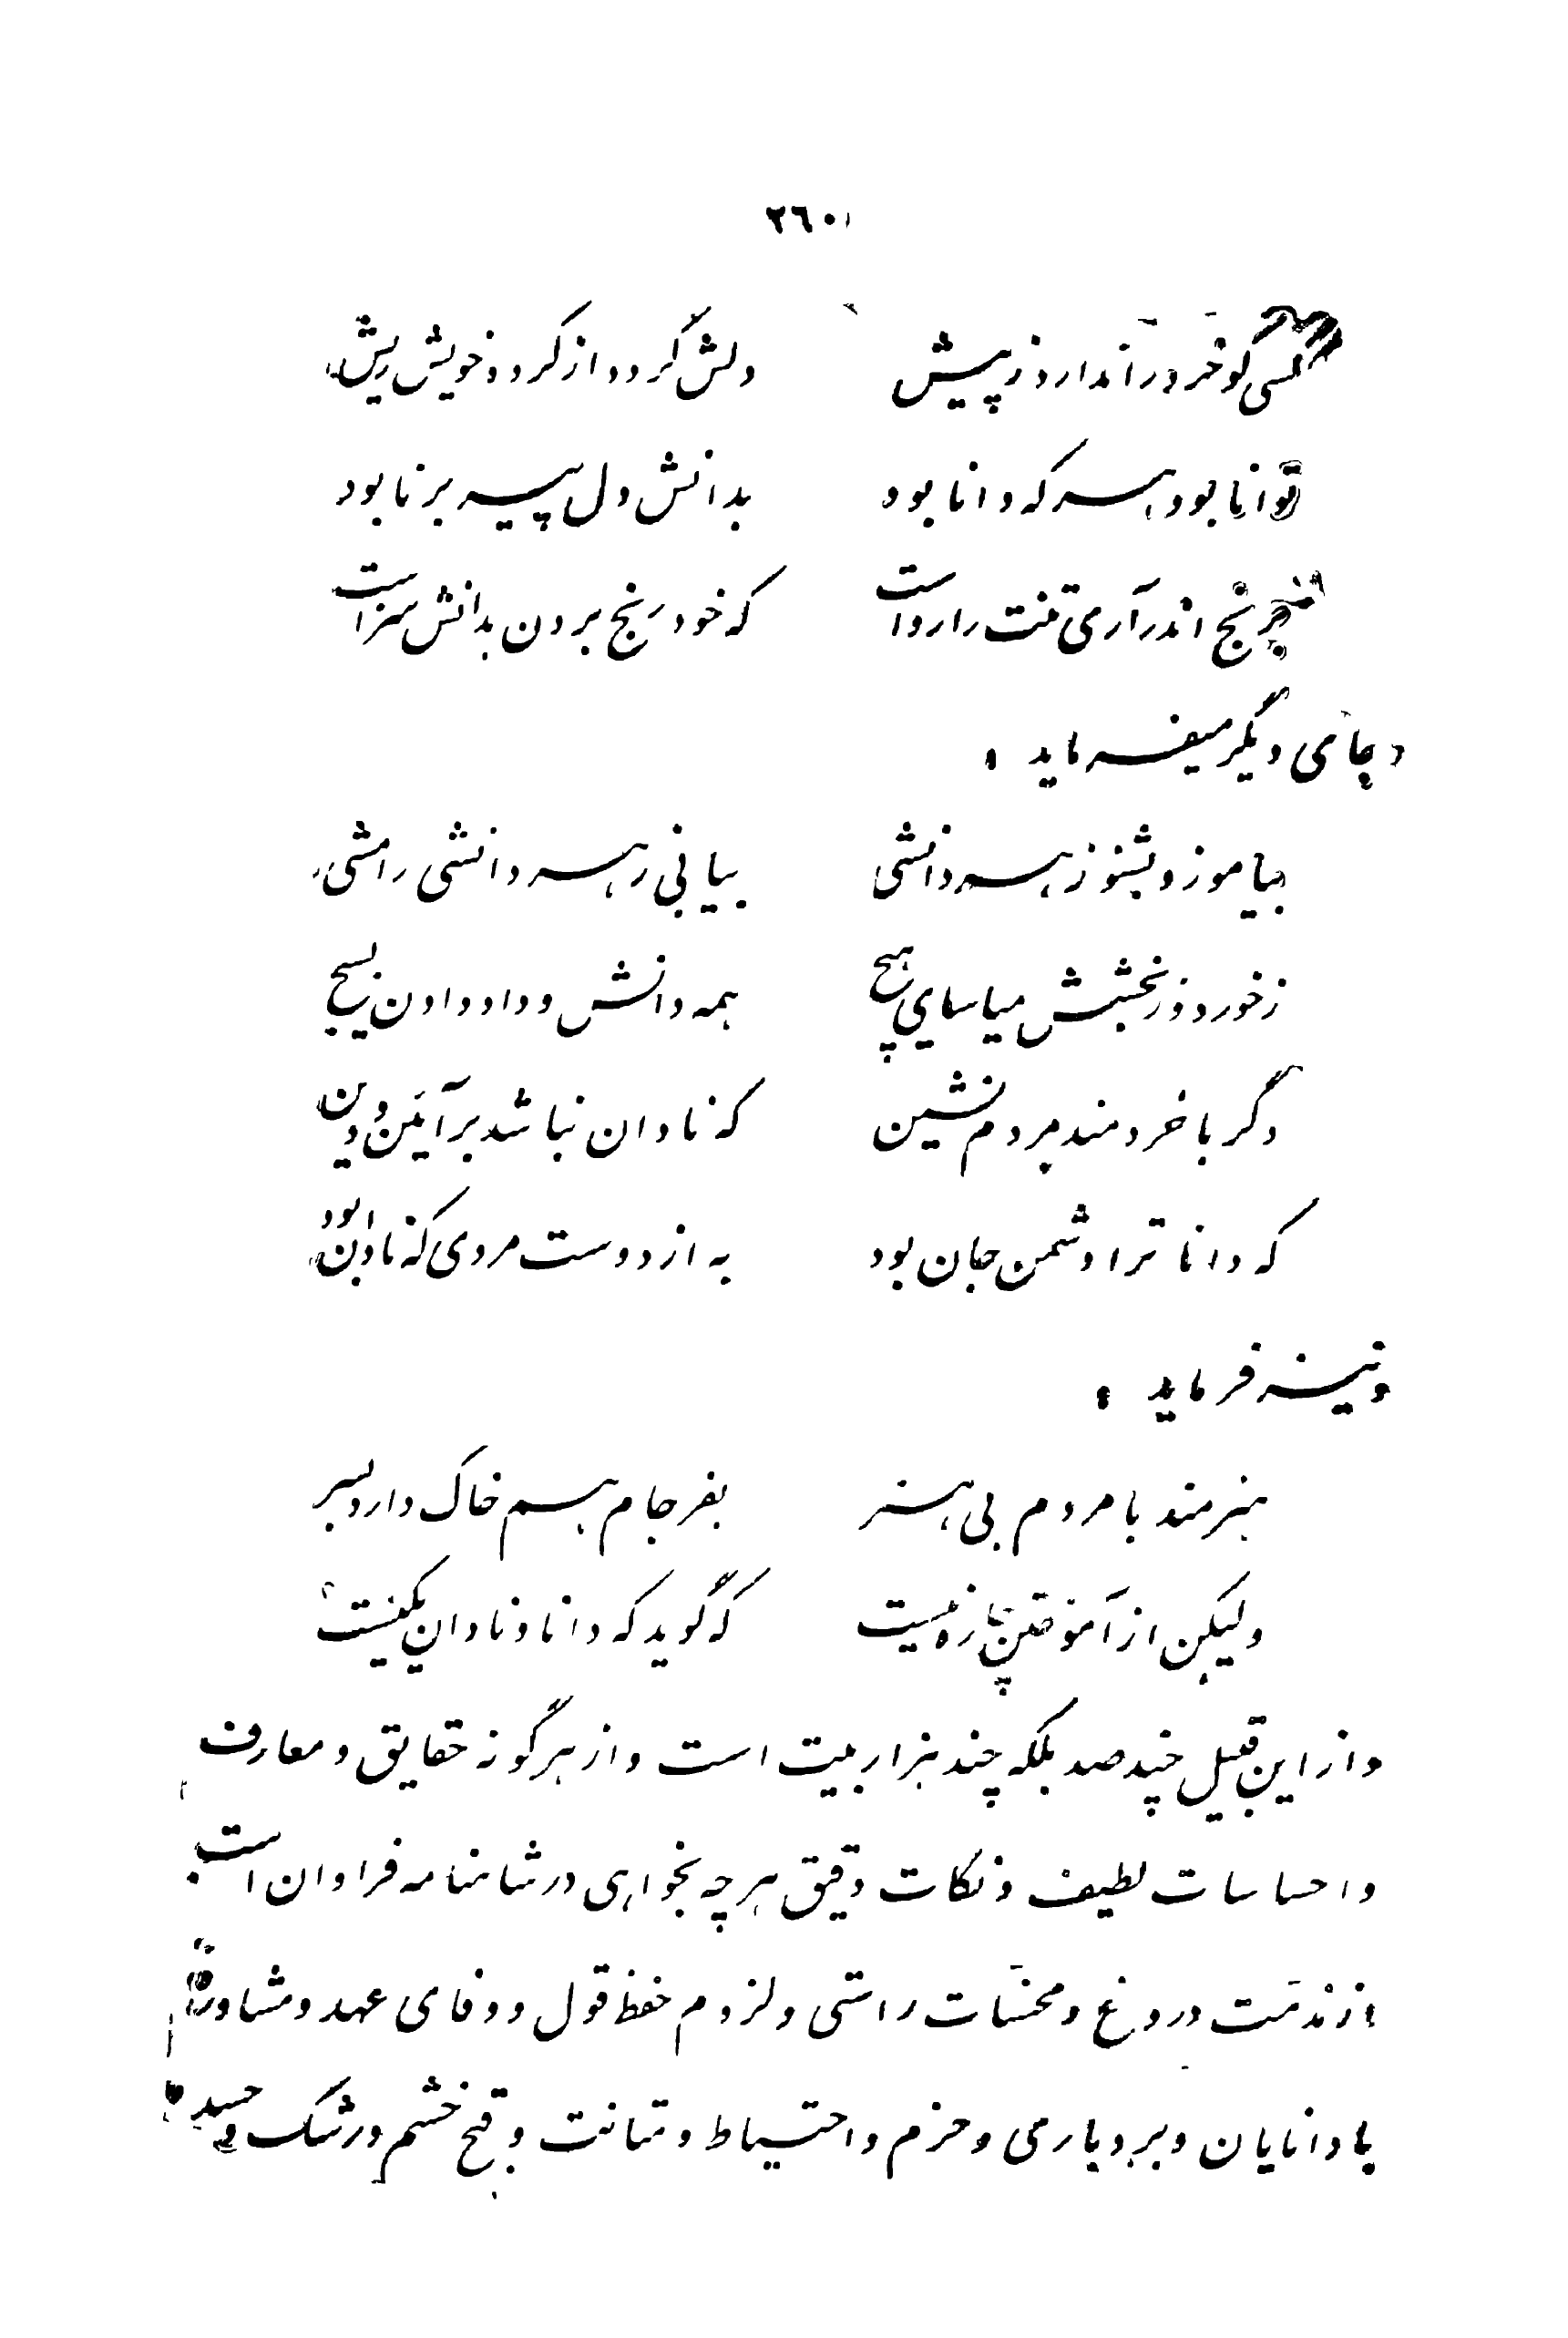 ٢٦٠
کسی کو خرد را ندارد ز پیش دلش گردد از کرده خویش ریش
توانا بود هر که دانا بود بدانش دل پیر برنا بود
برنج اندر آری تنت را رواست که خود رنج بردن بدانش سزاست
بجای دیگر میفرماید :
بیاموز و بشنو ز هر دانشی بیابی ز هر دانشی رامشی
ز خورد و ز بخشش میاسای هیچ همه دانش و داد دادن بسیج
دگر با خردمند مردم نشین که نادان نباشد بر آئین و دین
که دانا ترا دشمن جان بود به از دوست مردی که نادان بود
و نیز فرماید :
هنرمند با مردم بی هنر بفرجام هم خاک دارد بسر
ولیکن از آموختن چاره نیست که گوید که دانا و نادان یکیست
و از این قبیل چند صد بلکه چند هزار بیت است و از هر گونه حقایق و معارف
و احساسات لطیف و نکات دقیق هر چه بخواهی در شاهنامه فراوان است
از مذمت دروغ و محسنات راستی و لزوم حفظ قول و وفای عهد و مشاوره
با دانایان و بردباری و حزم و احتیاط و متانت و قبح خشم و رشک و حسد